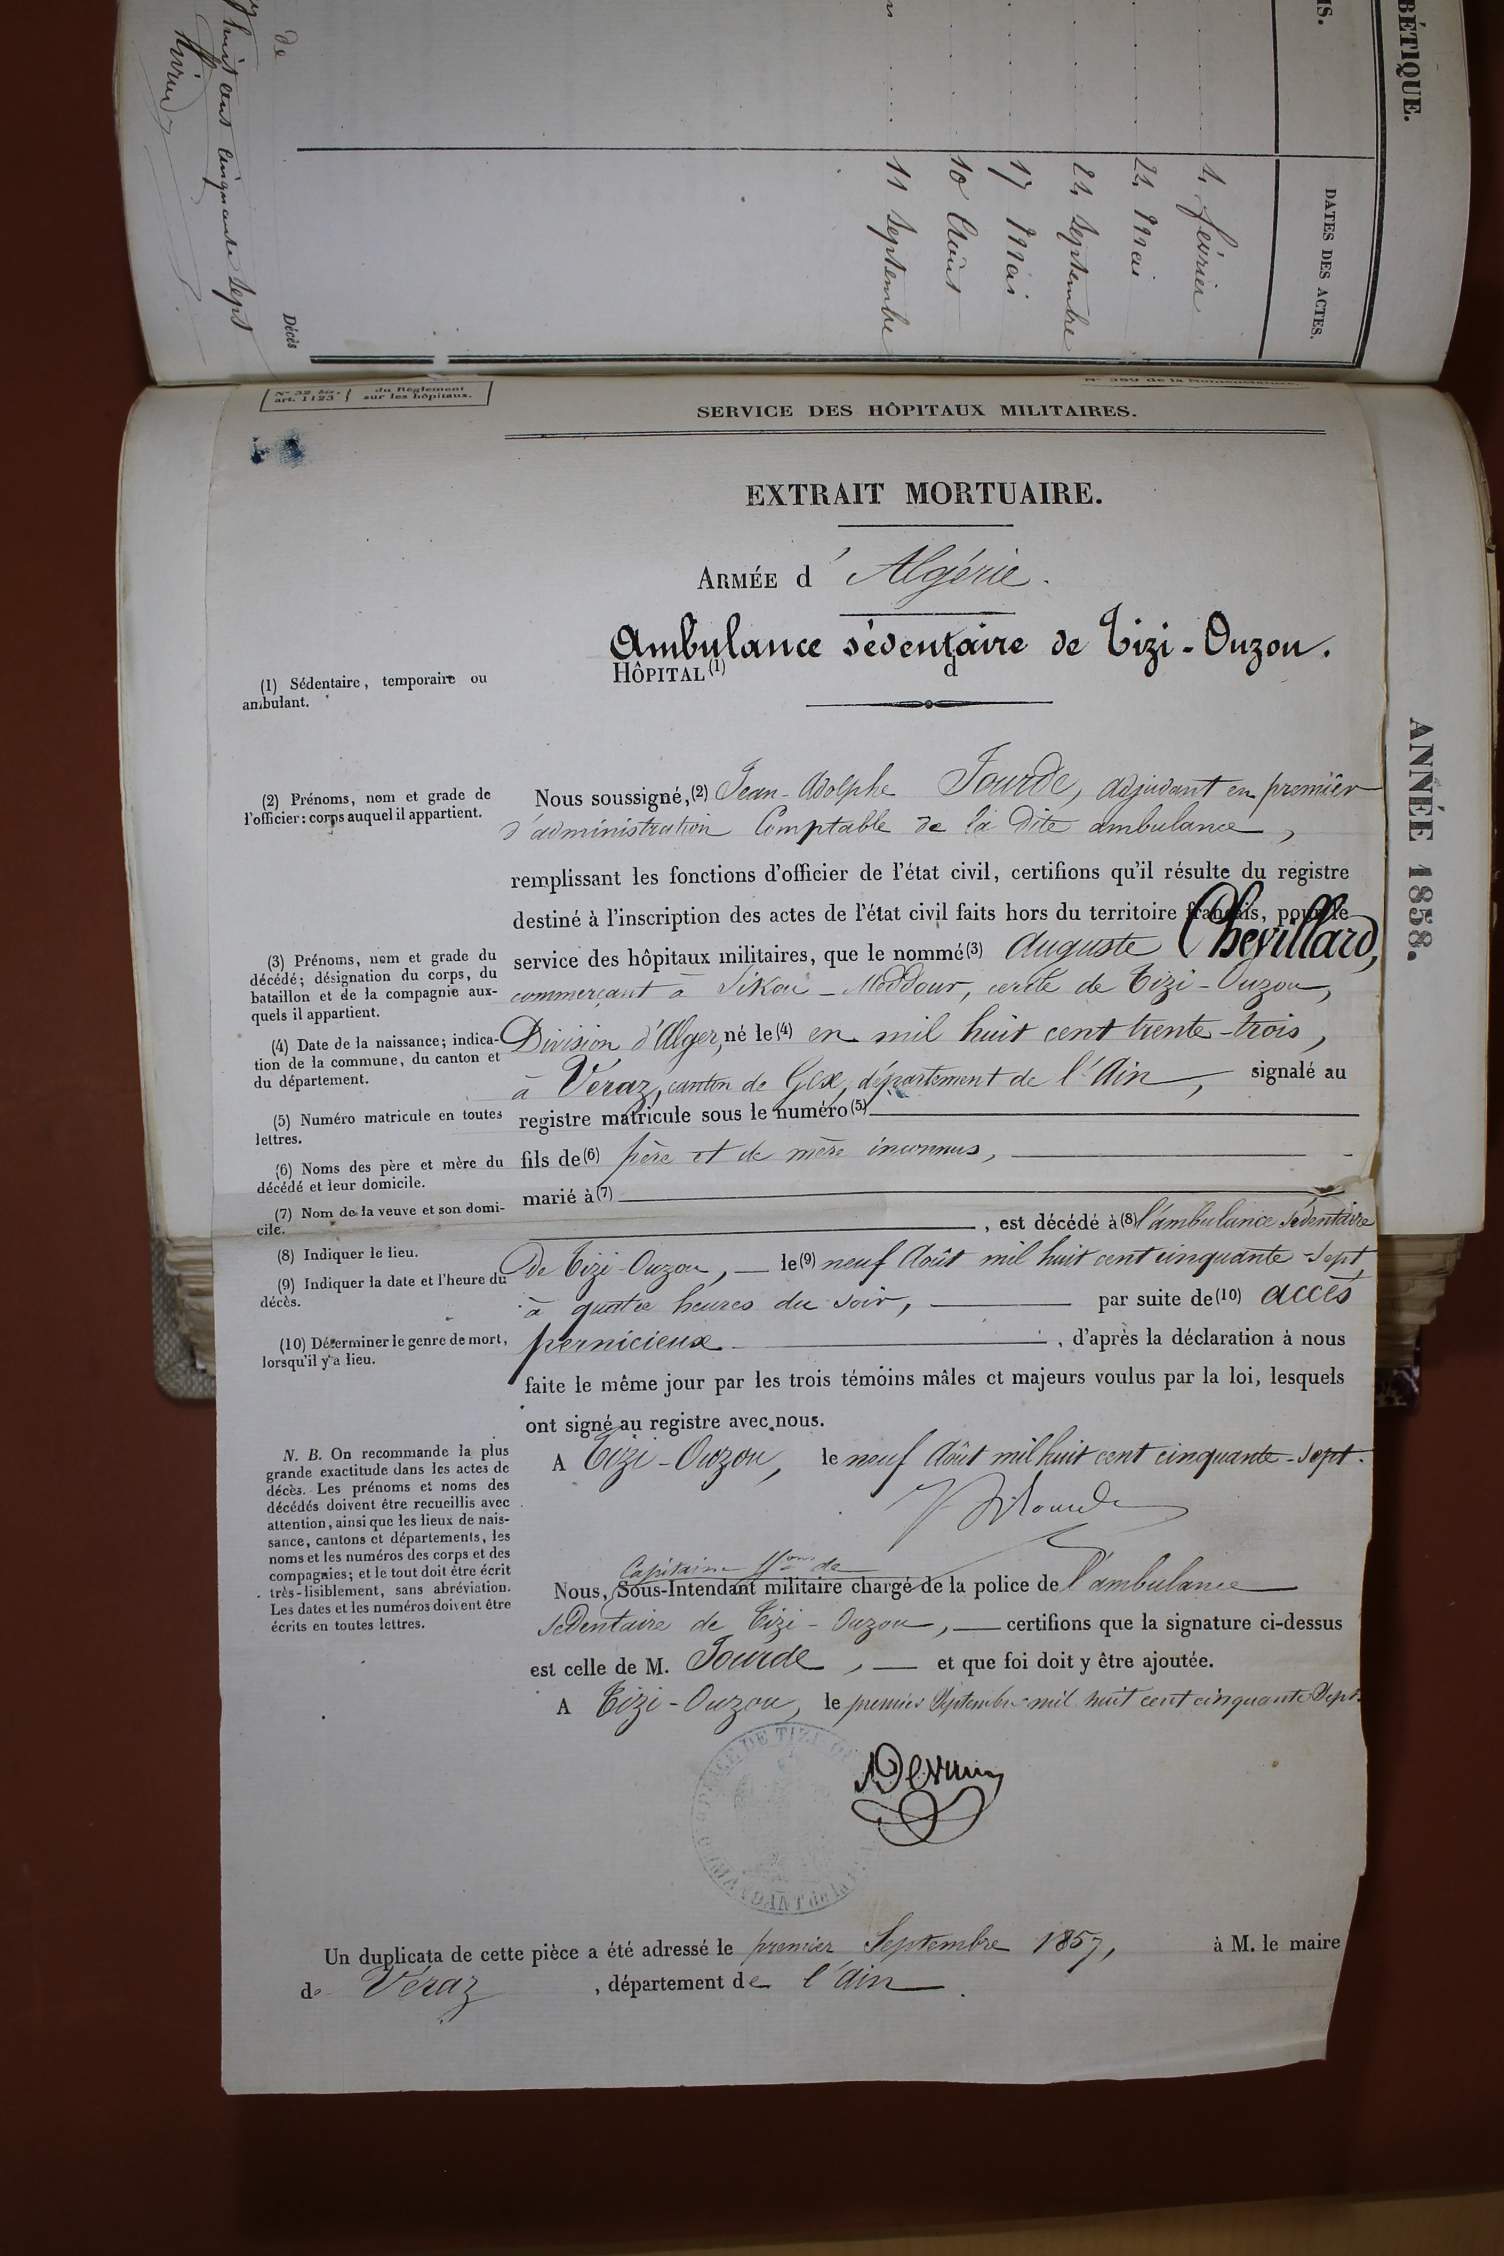 BÉTIQUE.
IS.
DATES DES ACTES.
4 février
24 Mai
24 Septembre
17 Mai
10 Août
11 Septembre
Décès
de
huit cent cinquante sept
N° 32 bis.
art. 1123
du Règlement
sur les hôpitaux.
N° 389 de la Nomenclature.
SERVICE DES HÔPITAUX MILITAIRES.
EXTRAIT MORTUAIRE.
ARMÉE d' Algérie.
Ambulance sédentaire de Tizi-Ouzou.
HÔPITAL (1) d
(1) Sédentaire, temporaire ou
ambulant.
ANNÉE 1858.
(2) Prénoms, nom et grade de
l'officier: corps auquel il appartient.
Nous soussigné, (2) Jean-Adolphe Jourde, adjudant en premier
d'administration Comptable de la dite ambulance,
remplissant les fonctions d'officier de l'état civil, certifions qu'il résulte du registre
destiné à l'inscription des actes de l'état civil faits hors du territoire français, pour le
service des hôpitaux militaires, que le nommé (3) Auguste Chevillard,
commerçant à Sikou-Meddour, cercle de Tizi-Ouzou,
Division d'Alger, né le (4) en mil huit cent trente-trois,
à Véraz, canton de Gex, département de l'Ain, signalé au
registre matricule sous le numéro (5)
fils de (6) père et de mère inconnus,
marié à (7)
, est décédé à (8) l'ambulance sédentaire
de Tizi-Ouzou, le (9) neuf Août mil huit cent cinquante-sept
à quatre heures du soir, par suite de (10) accès
pernicieux , d'après la déclaration à nous
faite le même jour par les trois témoins mâles et majeurs voulus par la loi, lesquels
ont signé au registre avec nous.
A Tizi-Ouzou, le neuf Août mil huit cent cinquante-sept.
(3) Prénoms, nom et grade du
décédé; désignation du corps, du
bataillon et de la compagnie aux-
quels il appartient.
(4) Date de la naissance; indica-
tion de la commune, du canton et
du département.
(5) Numéro matricule en toutes
lettres.
(6) Noms des père et mère du
décédé et leur domicile.
(7) Nom de la veuve et son domi-
cile.
(8) Indiquer le lieu.
(9) Indiquer la date et l'heure du
décès.
(10) Déterminer le genre de mort,
lorsqu'il y a lieu.
N. B. On recommande la plus
grande exactitude dans les actes de
décès. Les prénoms et noms des
décédés doivent être recueillis avec
attention, ainsi que les lieux de nais-
sance, cantons et départements, les
noms et les numéros des corps et des
compagnies; et le tout doit être écrit
très-lisiblement, sans abréviation.
Les dates et les numéros doivent être
écrits en toutes lettres.
Jourde
Capitaine ffons de
Nous, Sous-Intendant militaire chargé de la police de l'ambulance
sédentaire de Tizi-Ouzou, certifions que la signature ci-dessus
est celle de M. Jourde, et que foi doit y être ajoutée.
A Tizi-Ouzou, le premier Septembre mil huit cent cinquante Sept.
PLACE DE TIZI OU
COMMANDANT de la
Un duplicata de cette pièce a été adressé le premier Septembre 1857, à M. le maire
de Véraz , département de l'Ain.